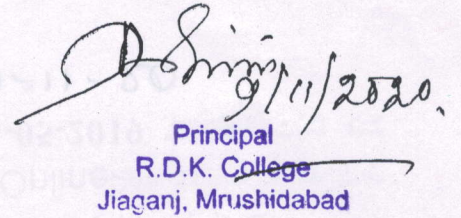 9/11/2020.
Principal
R.D.K. College
Jiaganj, Mrushidabad